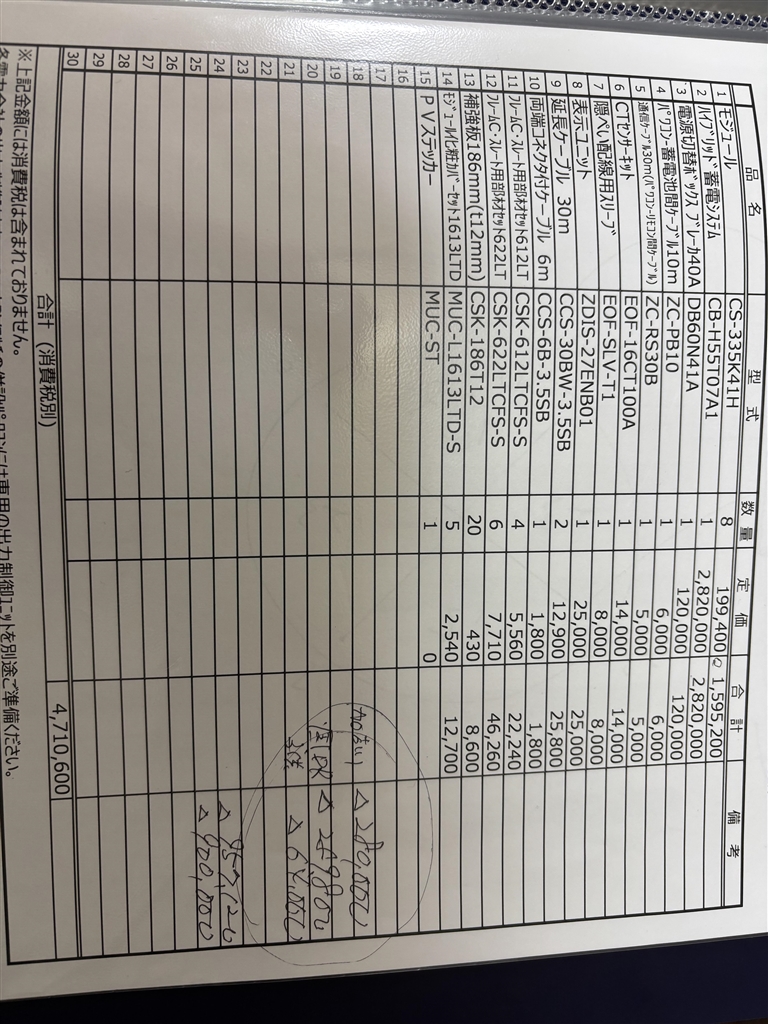 品 名 型 式 数 量 定 価 合 計 備 考
1 モジュール CS-335K41H 8 199,400 1,595,200
2 ハイブリッド蓄電システム CB-H55T07A1 1 2,820,000 2,820,000
3 電源切替ボックス ブレーカ40A DB60N41A 1 120,000 120,000
4 パワコン-蓄電池間ケーブル10m ZC-PB10 1 6,000 6,000
5 通信ケーブル30m(パワコン-リモコン間ケーブル) ZC-RS30B 1 5,000 5,000
6 CTセンサーキット EOF-16CT100A 1 14,000 14,000
7 隠ぺい配線用スリーブ EOF-SLV-T1 1 8,000 8,000
8 表示ユニット ZDIS-27ENB01 1 25,000 25,000
9 延長ケーブル 30m CCS-30BW-3.5SB 2 12,900 25,800
10 両端コネクタ付ケーブル 6m CCS-6B-3.5SB 1 1,800 1,800
11 フレームC・スレート用部材セット612LT CSK-612LTCFS-S 4 5,560 22,240
12 フレームC・スレート用部材セット622LT CSK-622LTCFS-S 6 7,710 46,260
13 補強板186mm(t12mm) CSK-186T12 20 430 8,600
14 モジュール化粧カバーセット1613LTD MUC-L1613LTD-S 5 2,540 12,700
15 PVステッカー MUC-ST 1 0
16
17
18 △280,000
19
20 △
21 △64,000
22
23
24 △
25 △900,000
26
27
28
29
30
合計（消費税別） 4,710,600
※上記金額には消費税は含まれておりません。